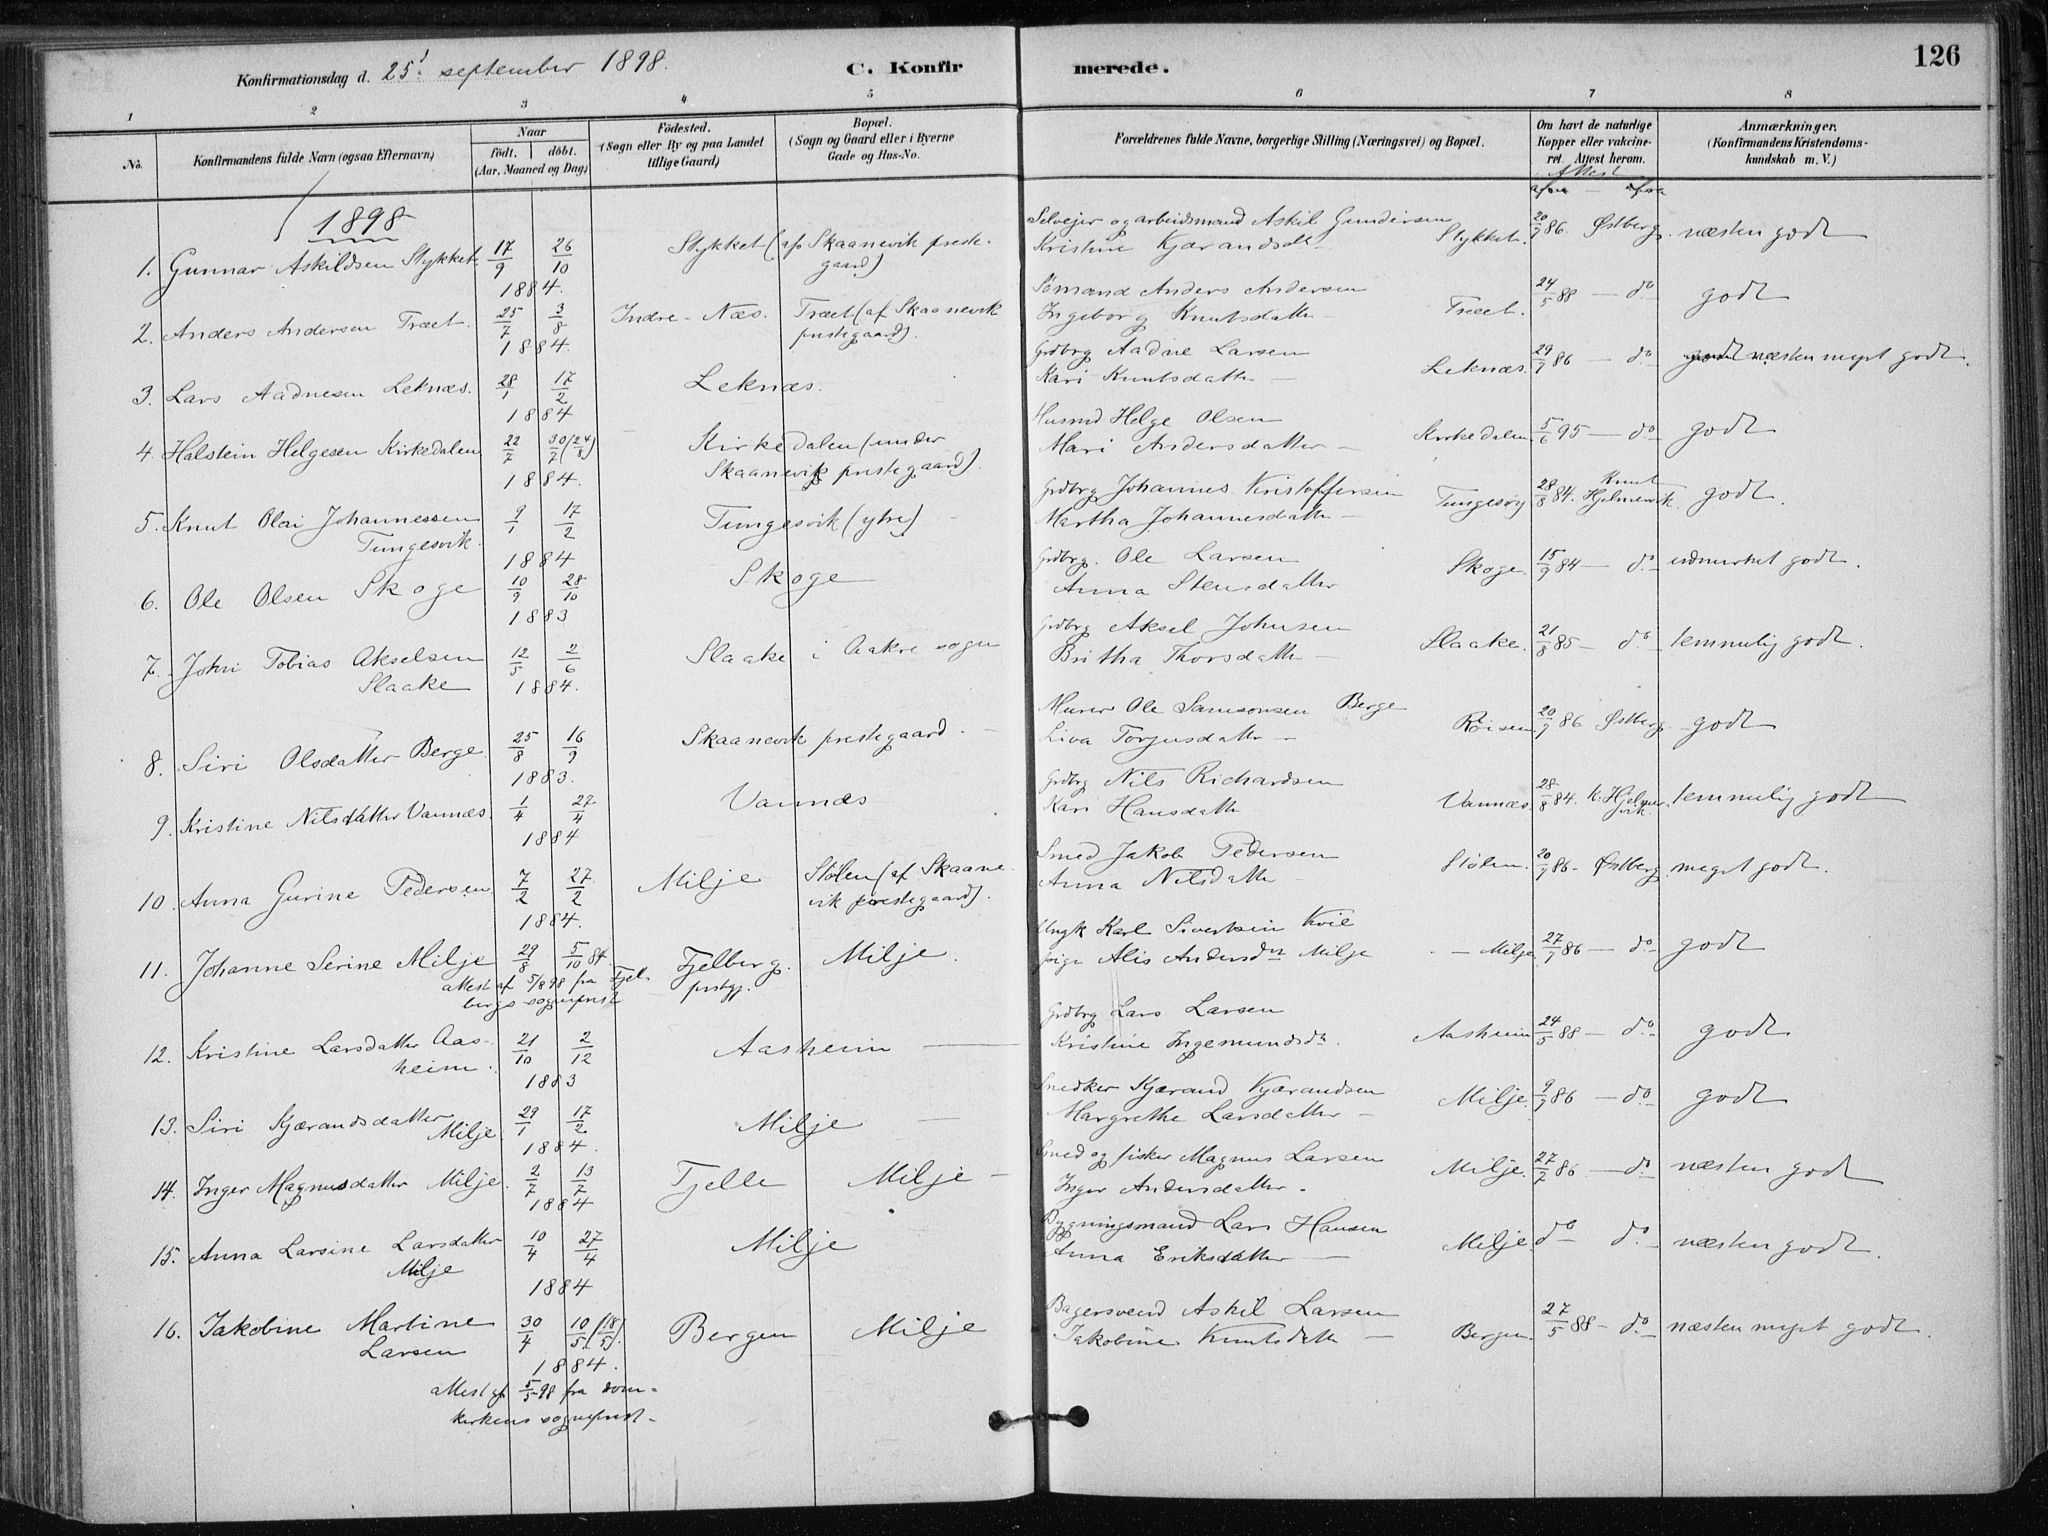 Konfirmationsdag d. 25! september 1898. C. Konfirmerede. 126
1 2 3 4 5 6 7 8
No. Konfirmandens fulde Navn (ogsaa Efternavn) Naar født. døbt. (Aar, Maaned og Dag) Fødested. (Sogn eller By og paa Landet tillige Gaard) Bopæl. (Sogn og Gaard eller i Byerne Gade og Hus-No. Forældrenes fulde Navne, borgerlige Stilling (Næringsvei) og Bopæl. Om havt de naturlige Kopper eller vakcineret. Attest herom. Anmærkninger. (Konfirmandens Kristendomskundskab m. V.)
Attest
1898
1. Gunnar Askildsen Stykket 17/9 26/10 1884. Stykket (af Skaanevik prestegaard) Selveier og arbeidsmand Askil Gundersen Kristine Kjærandsdt Stykket. 20/9 86. Østberg. næsten godt
2. Anders Andersen Træet. 25/7 3/8 1884. Indre-Næs. Træet (af Skaanevik prestegaard). Sømand Anders Andersen Ingeborg Knutsdatter Træet. 24/5 88 - do godt
3. Lars Aadnesen Leknæs. 28/1 17/2 1884 Leknæs. Grdbrg Aadne Larsen Kari Knutsdatter - Leknæs. 29/9 86 - do næsten meget godt.
4. Halstein Helgesen Kirkedalen 22/7 30/7 (24/8) 1884. Kirkedalen (under Skaanevik prestegaard). Husmd Helge Olsen Mari Andersdatter - Kirkedalen 5/6 95 - do godt
5. Knut Olai Johannessen Tungesvik. 9/1 17/2 1884 Tungesvik (ytre) - Grdbrg Johannes Kristoffersen Martha Johannesdatter - Tungesvig 28/8 84. Knut Hjelmevik. godt.
6. Ole Olsen Skoge 10/9 28/10 1883 Skoge Grdbrg. Ole Larsen Anna Stensdatter Skoge. 15/9 84 - do udmerket godt.
7. John Tobias Akselsen Slaake 12/5 2/6 1884. Slaake i Aakre sogn Grdbrg Aksel Johnsen Britha Thorsdatter - Slaake. 21/8 85 - do temmelig godt.
8. Siri Olsdatter Berge 25/8 16/9 1883. Skaanevik prestegaard. - Murer Ole Samsonsen Berge Liva Torgusdatter - Røisen 20/9 86 Østberg. godt
9. Kristine Nilsdatter Vannæs. 1/4 27/4 1884 Vannæs Grdbrg Nils Richardsen Kari Hansdatter Vannæs. 28/8 84. K. Hjelmevik. temmelig godt
10. Anna Gurine Pedersen 7/2 27/2 1884. Milje Stølen (af Skaanevik prestegaard). Smed Jakob Pedersen Anna Nilsdatter - Stølen. 20/9 86 - Østberg meget godt.
11. Johanne Serine Milje 29/8 5/10 84 Fjelberg. prstgj. Milje. Ungk Karl Sivertsen Kvie pige Alis Andersdtr Milje - Milje 27/9 86 - do godt
attest af 5/8 98 fra Fjelbergs sogneprest
12. Kristine Larsdatter Aasheim. 21/10 2/12 1883 Aasheim - Grdbrg Lars Larsen Kristine Ingemundsdtr. Aasheim 24/5 88 - do godt
13. Siri Kjærandsdatter Milje 29/1 17/2 1884. Milje - Snedker Kjærand Kjærandsen Margrethe Larsdatter - Milje. 9/9 86 - do godt
14. Inger Magnusdatter Milje. 2/7 13/7 1884 Fjelle Milje - Smed og fisker Magnus Larsen Inger Andersdatter - Milje. 27/7 86 - do næsten godt
15. Anna Larsine Larsdatter Milje 10/4 27/4 1884 Milje Bygningsmand Lars Hansen Anna Eriksdatter - Milje. do do næsten godt.
16. Jakobine Martine Larsen 30/4 10/5 (18/5). 1884. Bergen Milje Bagersvend Askil Larsen Jakobine Knutsdatter - Bergen. 27/5 88 - do næsten meget godt.
attest af 5/5 98 fra domkirkens sogneprest -